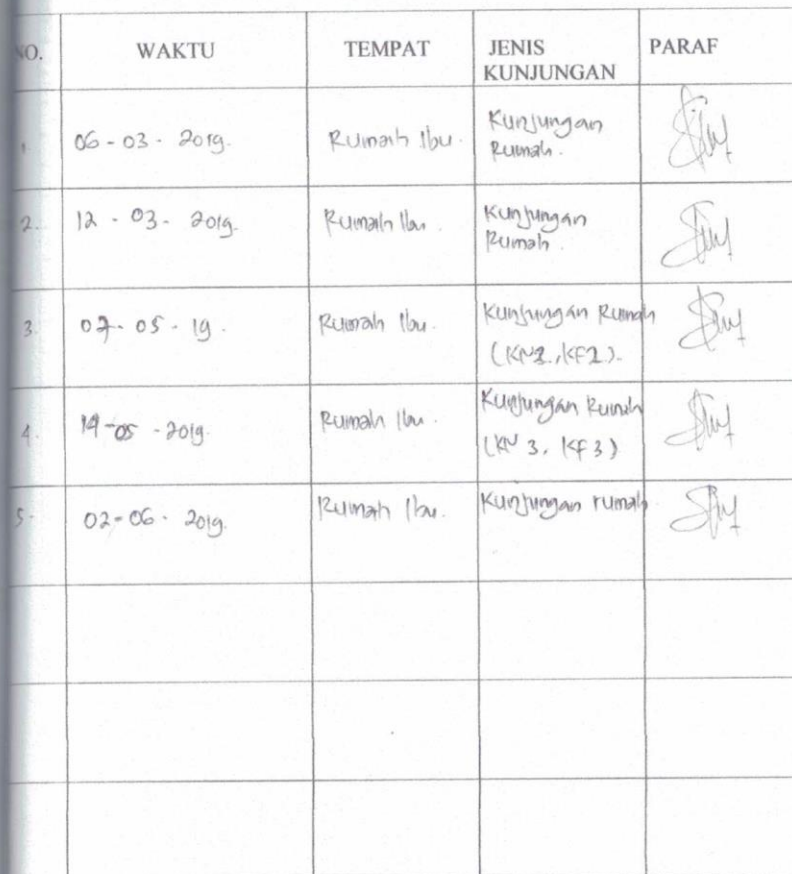 NO. WAKTU TEMPAT JENIS KUNJUNGAN PARAF
1. 06-03-2019. Rumah Ibu. Kunjungan Rumah.
2. 12-03-2019. Rumah Ibu. Kunjungan Rumah.
3. 07-05-19. Rumah Ibu. Kunjungan Rumah (KN2, KF2).
4. 14-05-2019. Rumah Ibu. Kunjungan Rumah (KN 3, KF 3)
5. 02-06-2019. Rumah Ibu. Kunjungan rumah.